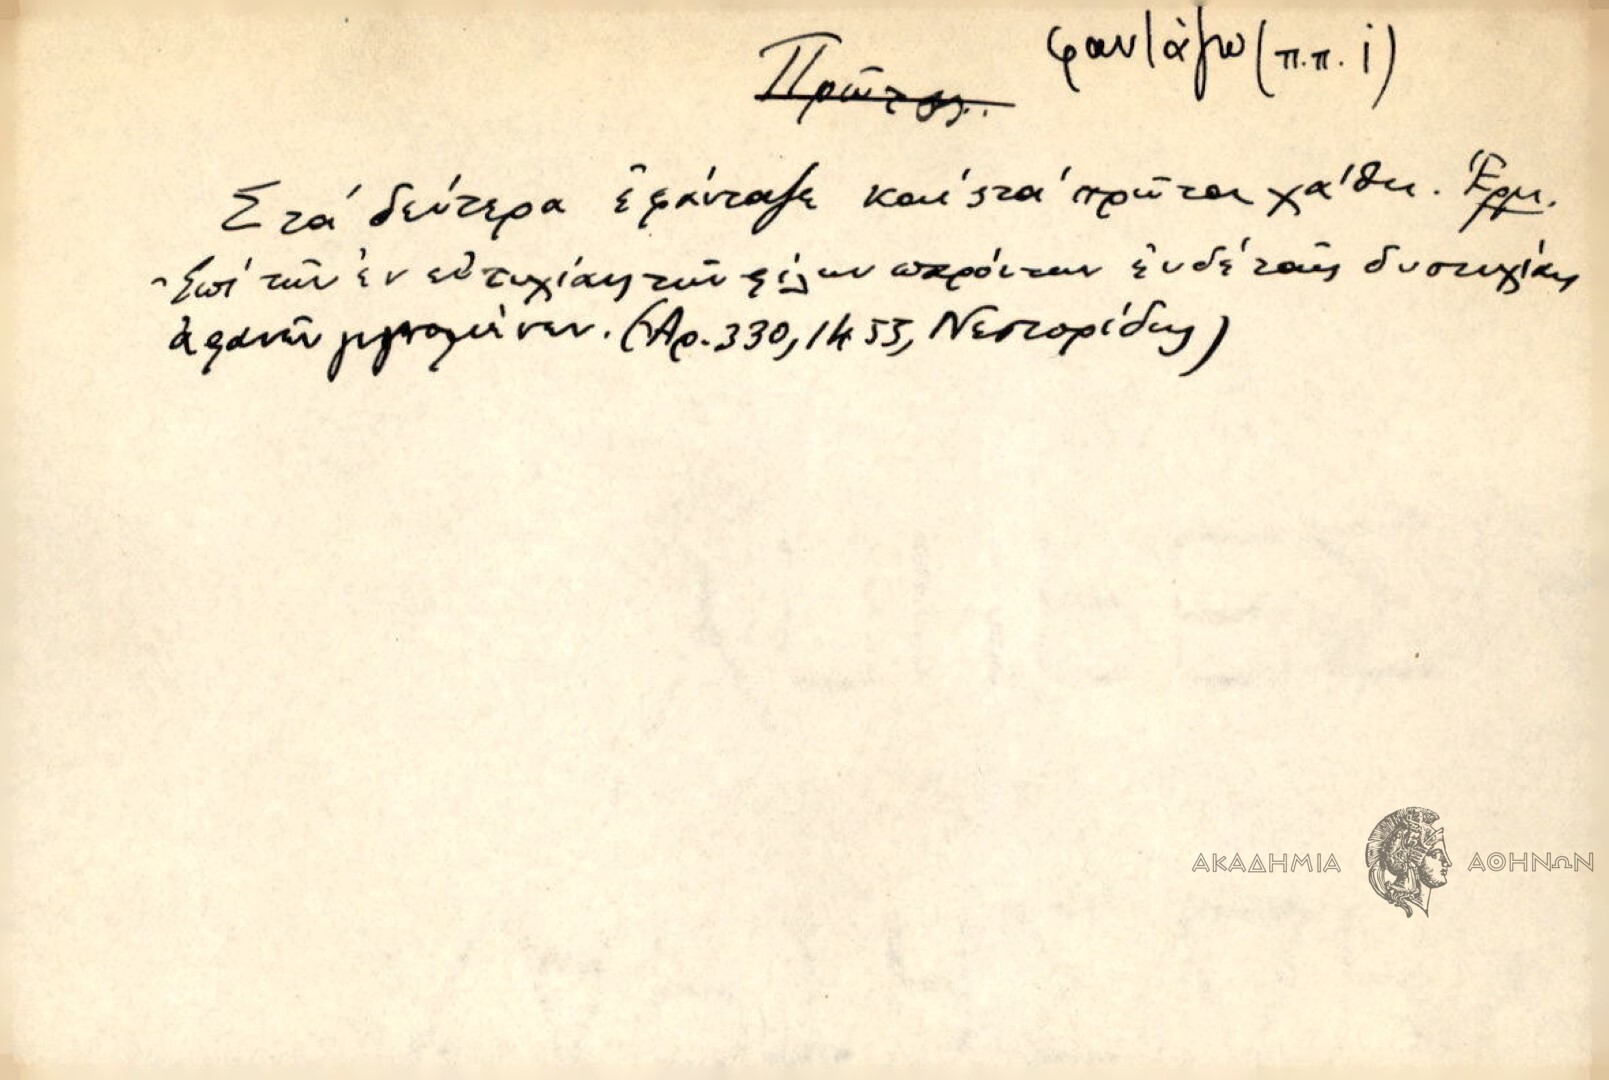 Πρῶτος. φαντάζω (π.π. i)
Στά δεύτερα ἐφάνταξε καί 'ς τά πρῶτα χάθη. Ἑρμ.
Ἐπί τῶν ἐν εὐτυχίαις τῶν φίλων παρόντων ἐν δέ ταῖς δυστυχίαις
ἀφανῶν γιγνομένων. (Ἀρ. 330, 1453, Νεστορίδης)
ΑΚΑΔΗΜΙΑ ΑΘΗΝΩΝ